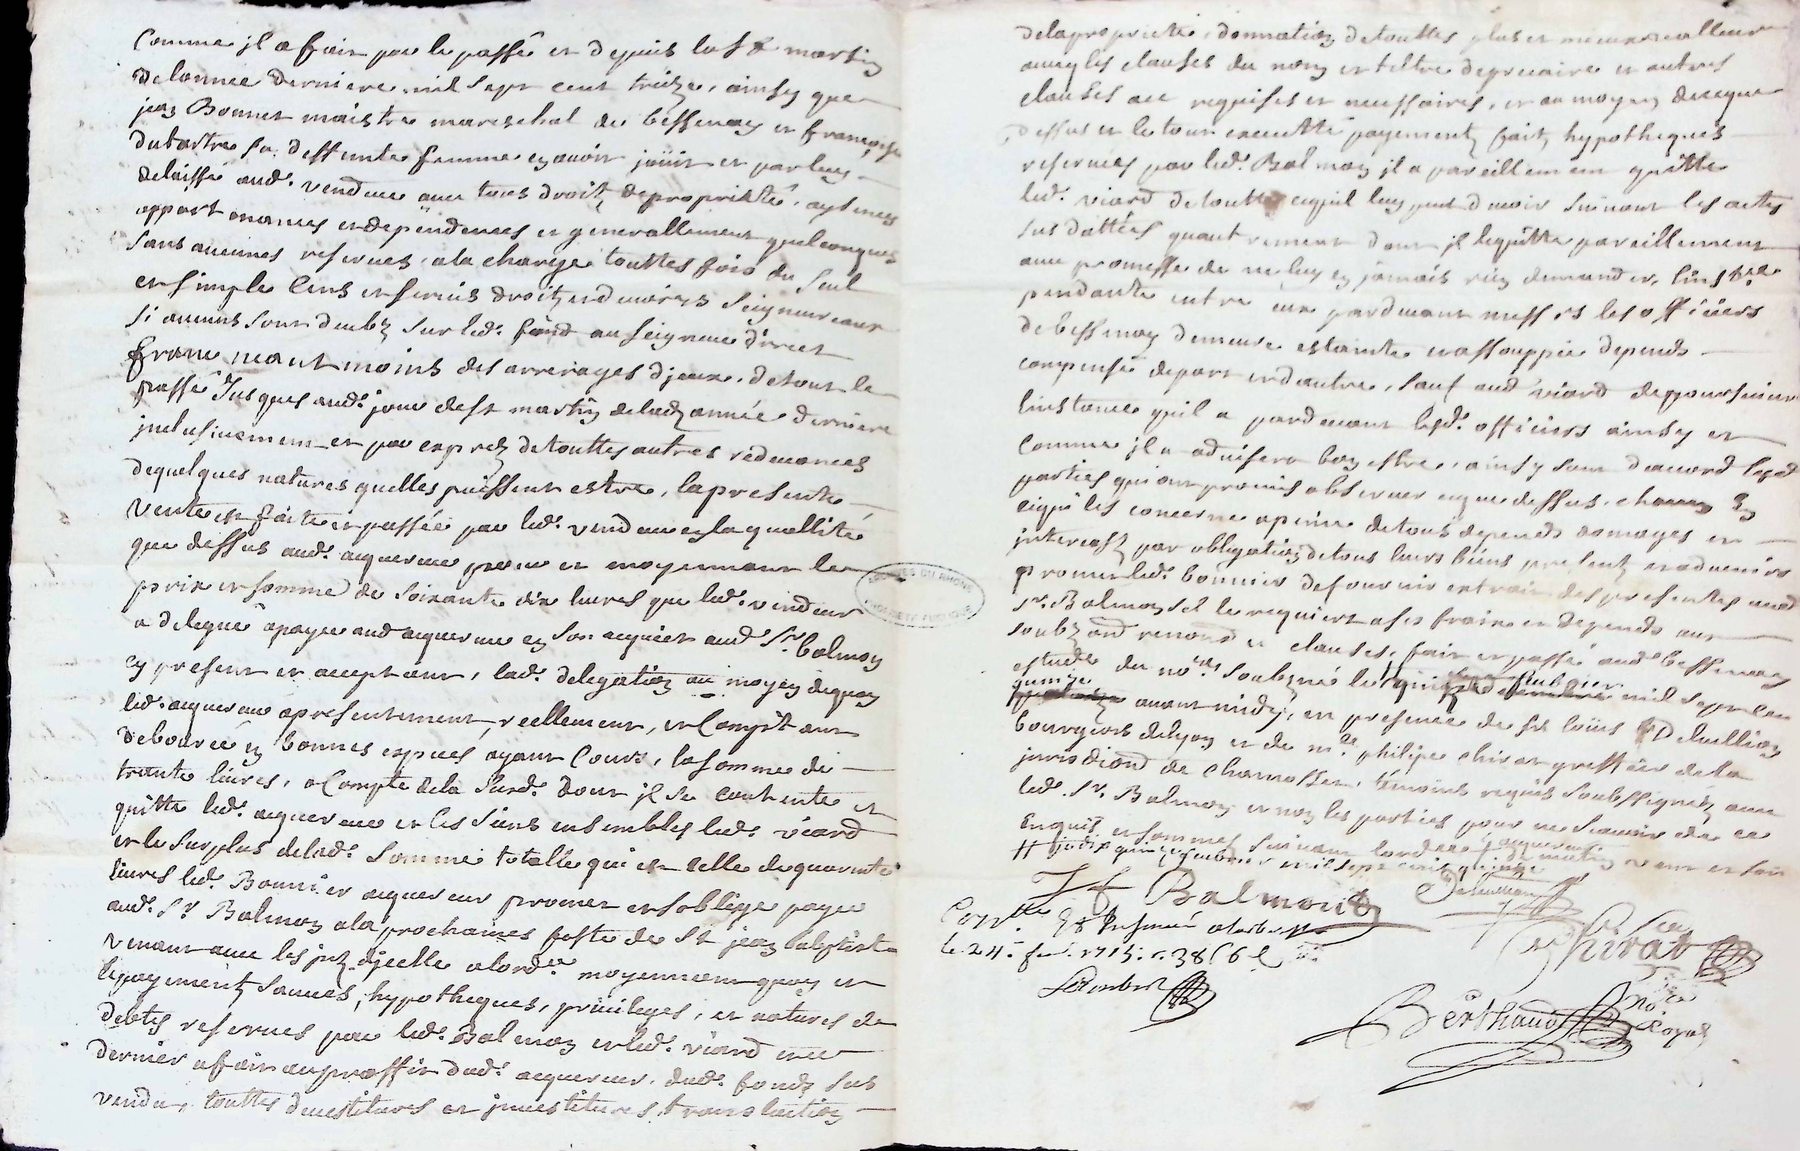 Comme jl a fait par le passé et depuis la St martin
de lannee derniere mil sept cent treize, ainsy que
jean Bonnet maistre mareschal de bessenay et françoise
dutartre sa deffunte femme en avoir joüit et par luy
delaissé aud. vendeur avec tous droitz de proprieté, aysences
appartenances et dependences et generallement quelconques
sans aucunes reserves, a la charge touttes fois du seul
et simple Cens et servis droitz et devoirs seigneuriaux
si aucuns sont deubz sur led. fond au seigneur direct
franc neautmoins des arrerages djceux, de tout le
passé Jusques aud. jour de St martin de lad. année derniere
jnclusivement et par exprez de touttes autres redevances
de quelques natures quelles puissent estre, la presente
vente est faite et passée par led. vendeur en la quallité
que dessus aud. aquereur pour et moyennant le
prix et somme de soixante dix livres que led. vendeur
a delegué a payer aud. aquereur en son acquict aud. Sr. Balmon
cy present et acceptant, lad. delegation au moyen de quoy
led. aquereur a presentement, reellement, et Comptant
debourcé en bonnes especes ayant Cours, la somme de
trante livres, a Compte de la susd. dont jl se contente et
quitte led. aquereur et les siens ensembles led. viard
et le surplus de lad. somme totalle qui est celle de quarente
livres led. Bonnier aquereur promet et soblige payer
aud. Sr. Balmon a la prochaines feste de St jean baptiste
venant avec les jntz djcelle a lordre moyennant quoy et
le payementz sauves, hypotheques, privileges, et natures de
debtes reserves par led. Balmon et led. viard ce
dernier a fait au proffit dud. aquereur, dud. fondz sus
vendu, touttes devestitures et jnvestitures, translation
de la proprieté, donnation de touttes plus et mieux valleur
avec les clauses du nom et tiltre de precaire et autres
clauses a ce requises et necessaires, et au moyen de ce que
dessus et le tout executté payementz faitz, hypotheques
reservees par led. Balmon jl a pareillement quitte
led. viard de toutte ce quil luy peut devoir suivant les actes
sus dattées quautrement dont jl le quitte pareillement
avec promesse de ne luy en jamais rien demander, linst.ce
pendante entre eux pardevant messrs les officiers
de bessenay demeure estainte et assouppie depends
compensé de part et dautre, sauf aud. viard de poursuivre
linstance quil a pardevant lesd. officiers ainsy et
comme jl advisera bon estre, ainsy sont d'accord lesd.
parties qui ont promis observer ce que dessus, chacun en
ce qui les concerne a peine de tous depends domages et
interestz par obligation de tous leurs biens presentz et advenirs
promet led. bonnier de fournir extrait des presentes aud.
Sr. Balmon sil le requiert a ses frais et depends aux
soubz ord. renons. et clauses, fait et passé aud. bessenay
estude du nore. soubzné le quinze febvrier mil sept cent
quinze avant midy, en presence de sr loüis Delaillion
bourgeois de lyon et de me. philipe chirat greffier de la
jurisdiond de chamosset, témoins requis soubssignéz avec
led. Sr. Balmon et non les parties pour ne scavoir de ce
Enquis et sommez suivant lordce
Jf Balmont
Chirat
Conlle Et Insinué a larbresle
le 24e. fev. 1715. r. 38 s 6 d
Berthaud nore Royal